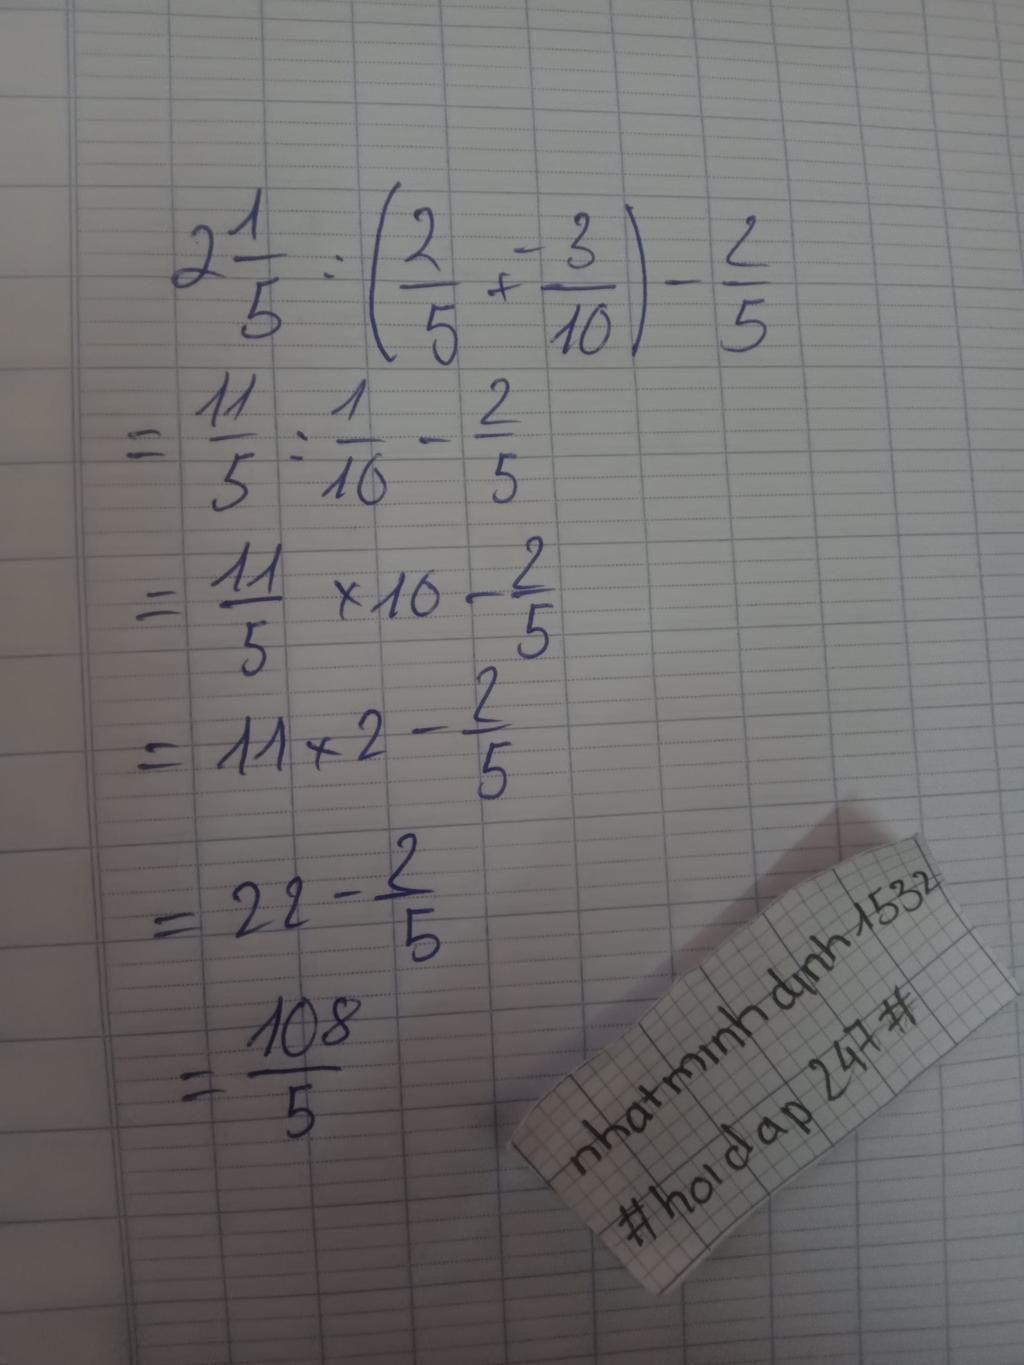 2 1/5 : (2/5 + -3/10) - 2/5
= 11/5 : 1/10 - 2/5
= 11/5 × 10 - 2/5
= 11 × 2 - 2/5
= 22 - 2/5
= 108/5
nhatminhdinh1532
#hoidap247#